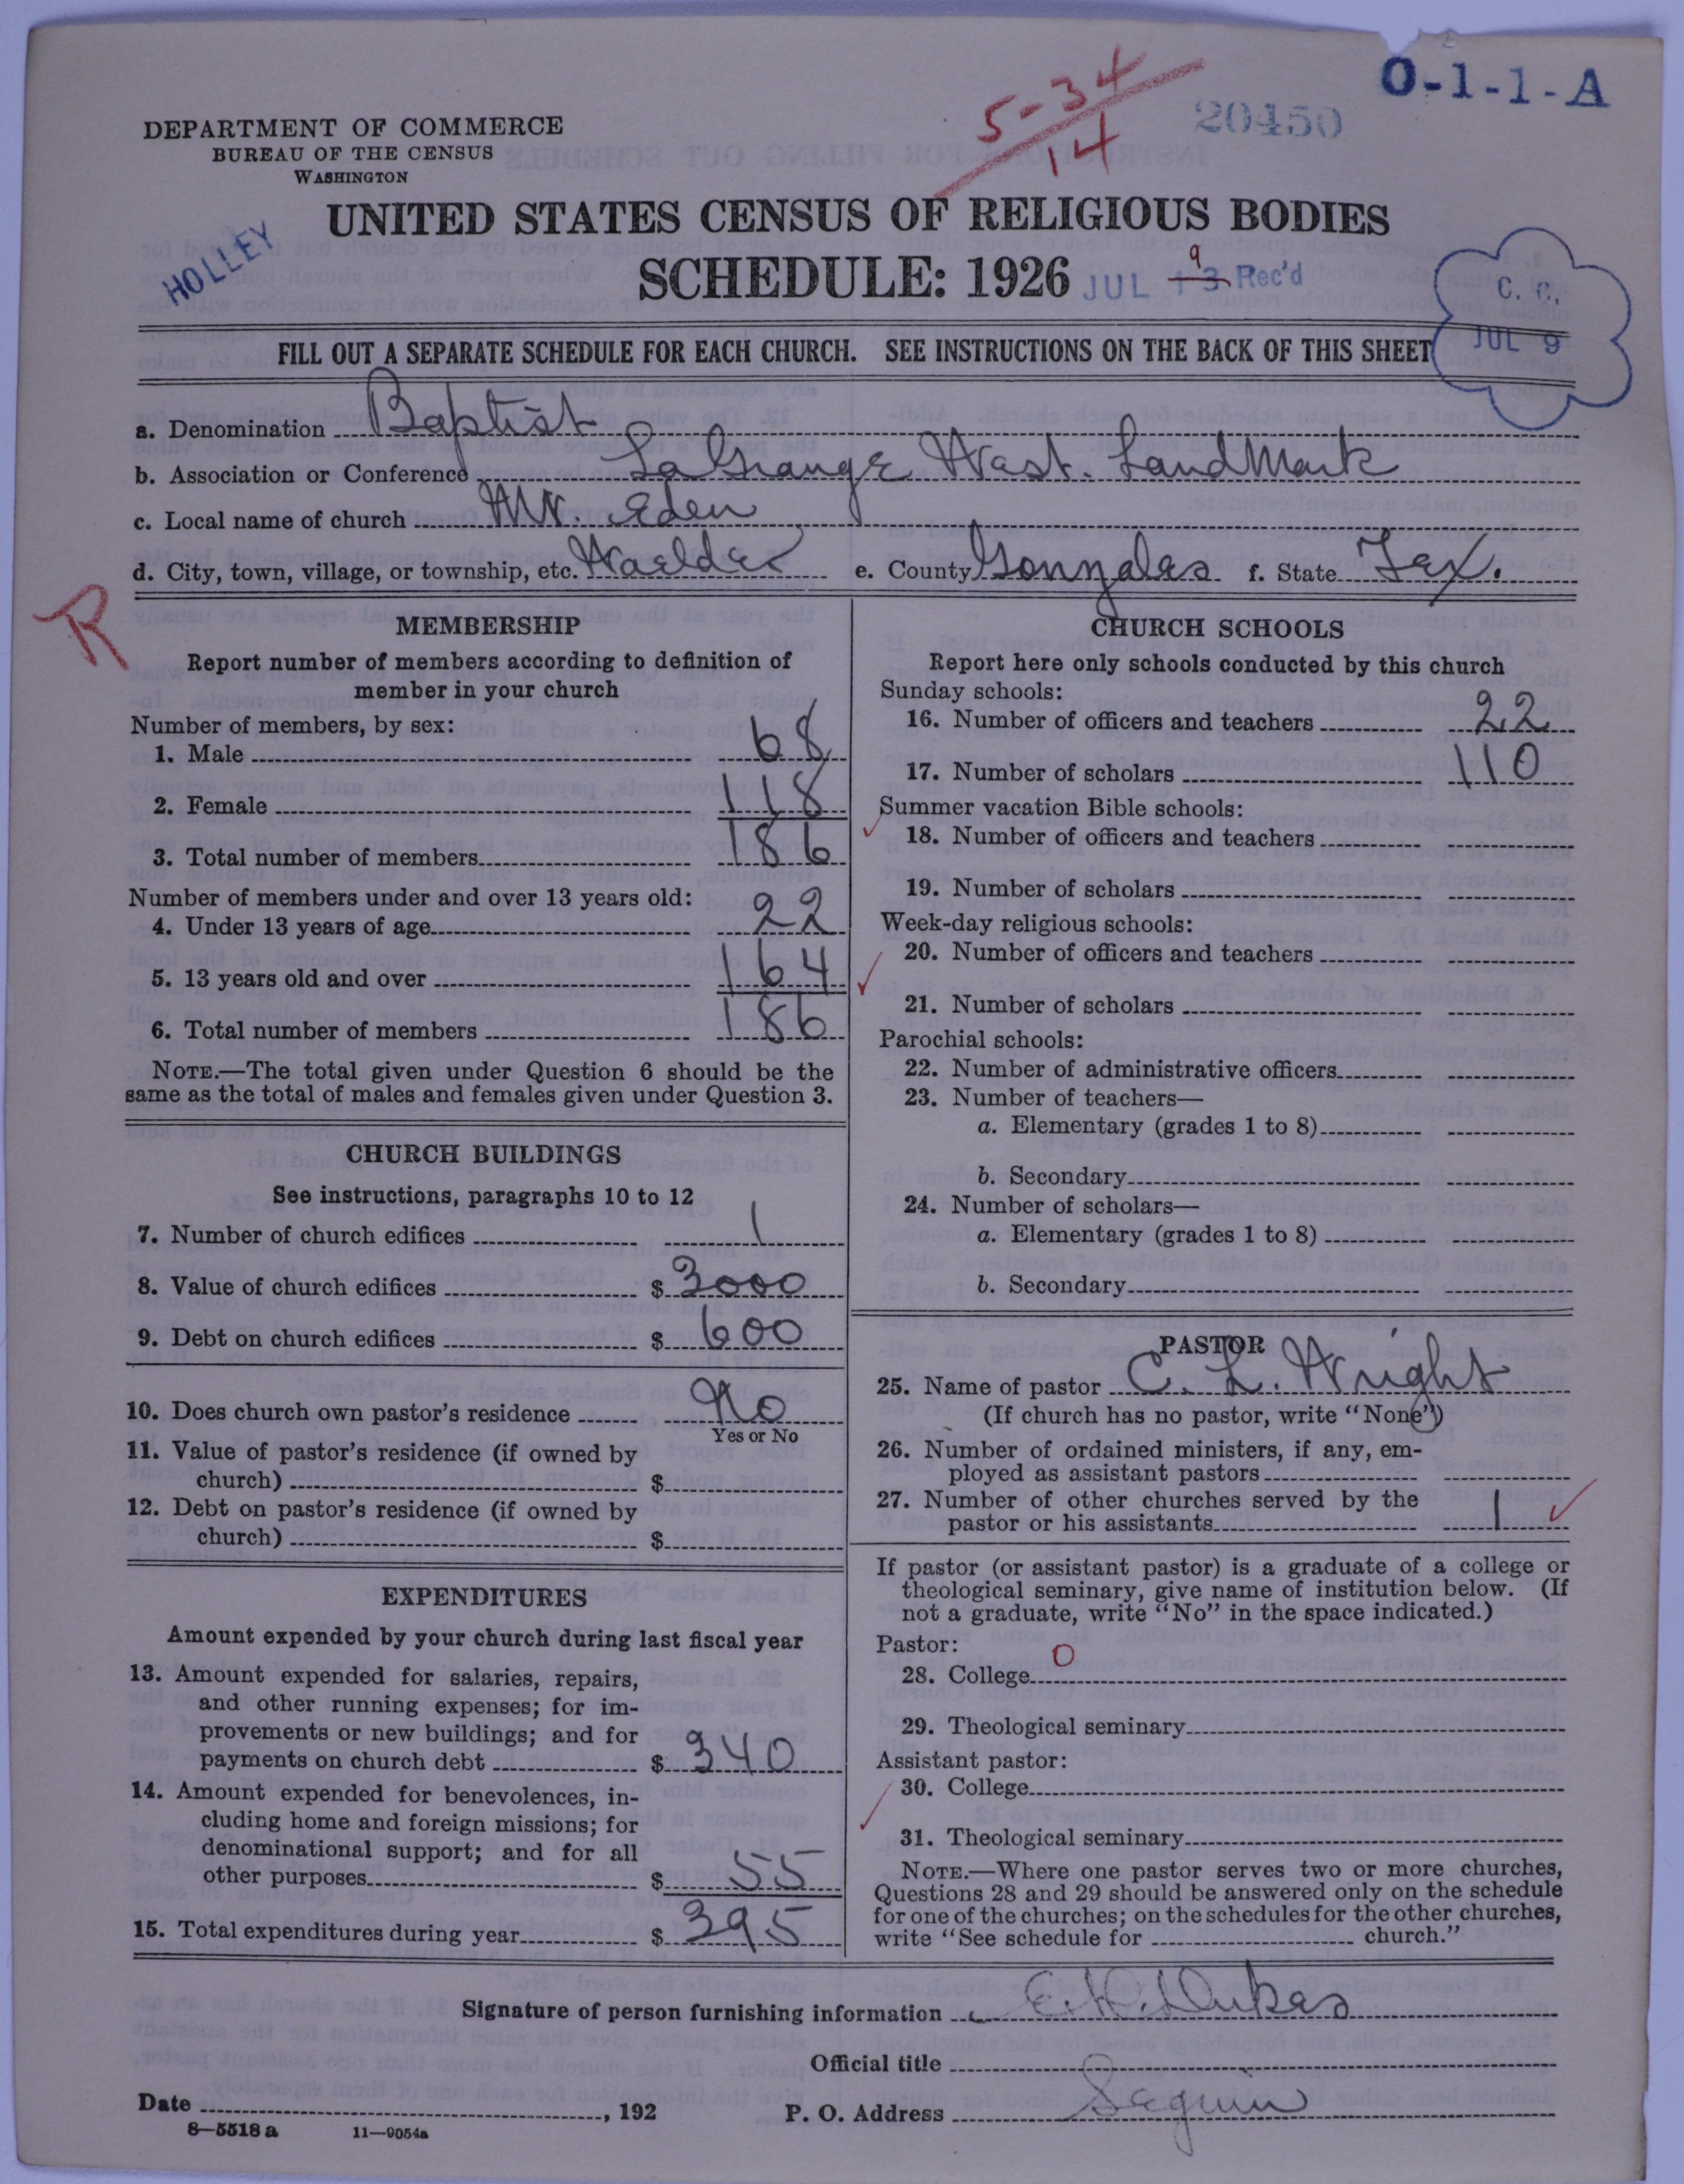 O-1-1-A
5-34
14
20450
DEPARTMENT OF COMMERCE
BUREAU OF THE CENSUS
WASHINGTON
UNITED STATES CENSUS OF RELIGIOUS BODIES
HOLLEY
SCHEDULE: 1926
JUL 13 9 Rec'd
C. C.
JUL 9
FILL OUT A SEPARATE SCHEDULE FOR EACH CHURCH. SEE INSTRUCTIONS ON THE BACK OF THIS SHEET
a. Denomination Baptist
b. Association or Conference LaGrange West. LandMark
c. Local name of church Mt. Eden
d. City, town, village, or township, etc. Waelder e. County Gonzales f. State Tex.
R
MEMBERSHIP
Report number of members according to definition of
member in your church
Number of members, by sex:
1. Male 68
2. Female 118
3. Total number of members 186
Number of members under and over 13 years old:
4. Under 13 years of age 22
5. 13 years old and over 164
6. Total number of members 186
NOTE.—The total given under Question 6 should be the
same as the total of males and females given under Question 3.
CHURCH BUILDINGS
See instructions, paragraphs 10 to 12
7. Number of church edifices 1
8. Value of church edifices $ 3000
9. Debt on church edifices $ 600
10. Does church own pastor's residence No
Yes or No
11. Value of pastor's residence (if owned by
church) $
12. Debt on pastor's residence (if owned by
church) $
EXPENDITURES
Amount expended by your church during last fiscal year
13. Amount expended for salaries, repairs,
and other running expenses; for im-
provements or new buildings; and for
payments on church debt $ 340
14. Amount expended for benevolences, in-
cluding home and foreign missions; for
denominational support; and for all
other purposes $ 55
15. Total expenditures during year $ 395
CHURCH SCHOOLS
Report here only schools conducted by this church
Sunday schools:
16. Number of officers and teachers 22
17. Number of scholars 110
Summer vacation Bible schools:
18. Number of officers and teachers
19. Number of scholars
Week-day religious schools:
20. Number of officers and teachers
21. Number of scholars
Parochial schools:
22. Number of administrative officers
23. Number of teachers—
a. Elementary (grades 1 to 8)
b. Secondary
24. Number of scholars—
a. Elementary (grades 1 to 8)
b. Secondary
PASTOR
25. Name of pastor C. L. Wright
(If church has no pastor, write "None")
26. Number of ordained ministers, if any, em-
ployed as assistant pastors
27. Number of other churches served by the
pastor or his assistants 1
If pastor (or assistant pastor) is a graduate of a college or
theological seminary, give name of institution below. (If
not a graduate, write "No" in the space indicated.)
Pastor:
28. College 0
29. Theological seminary
Assistant pastor:
30. College
31. Theological seminary
NOTE.—Where one pastor serves two or more churches,
Questions 28 and 29 should be answered only on the schedule
for one of the churches; on the schedules for the other churches,
write "See schedule for church."
Signature of person furnishing information E. H. Dukes
Official title
Date , 192 P. O. Address Seguin
8—5518 a 11—9054a